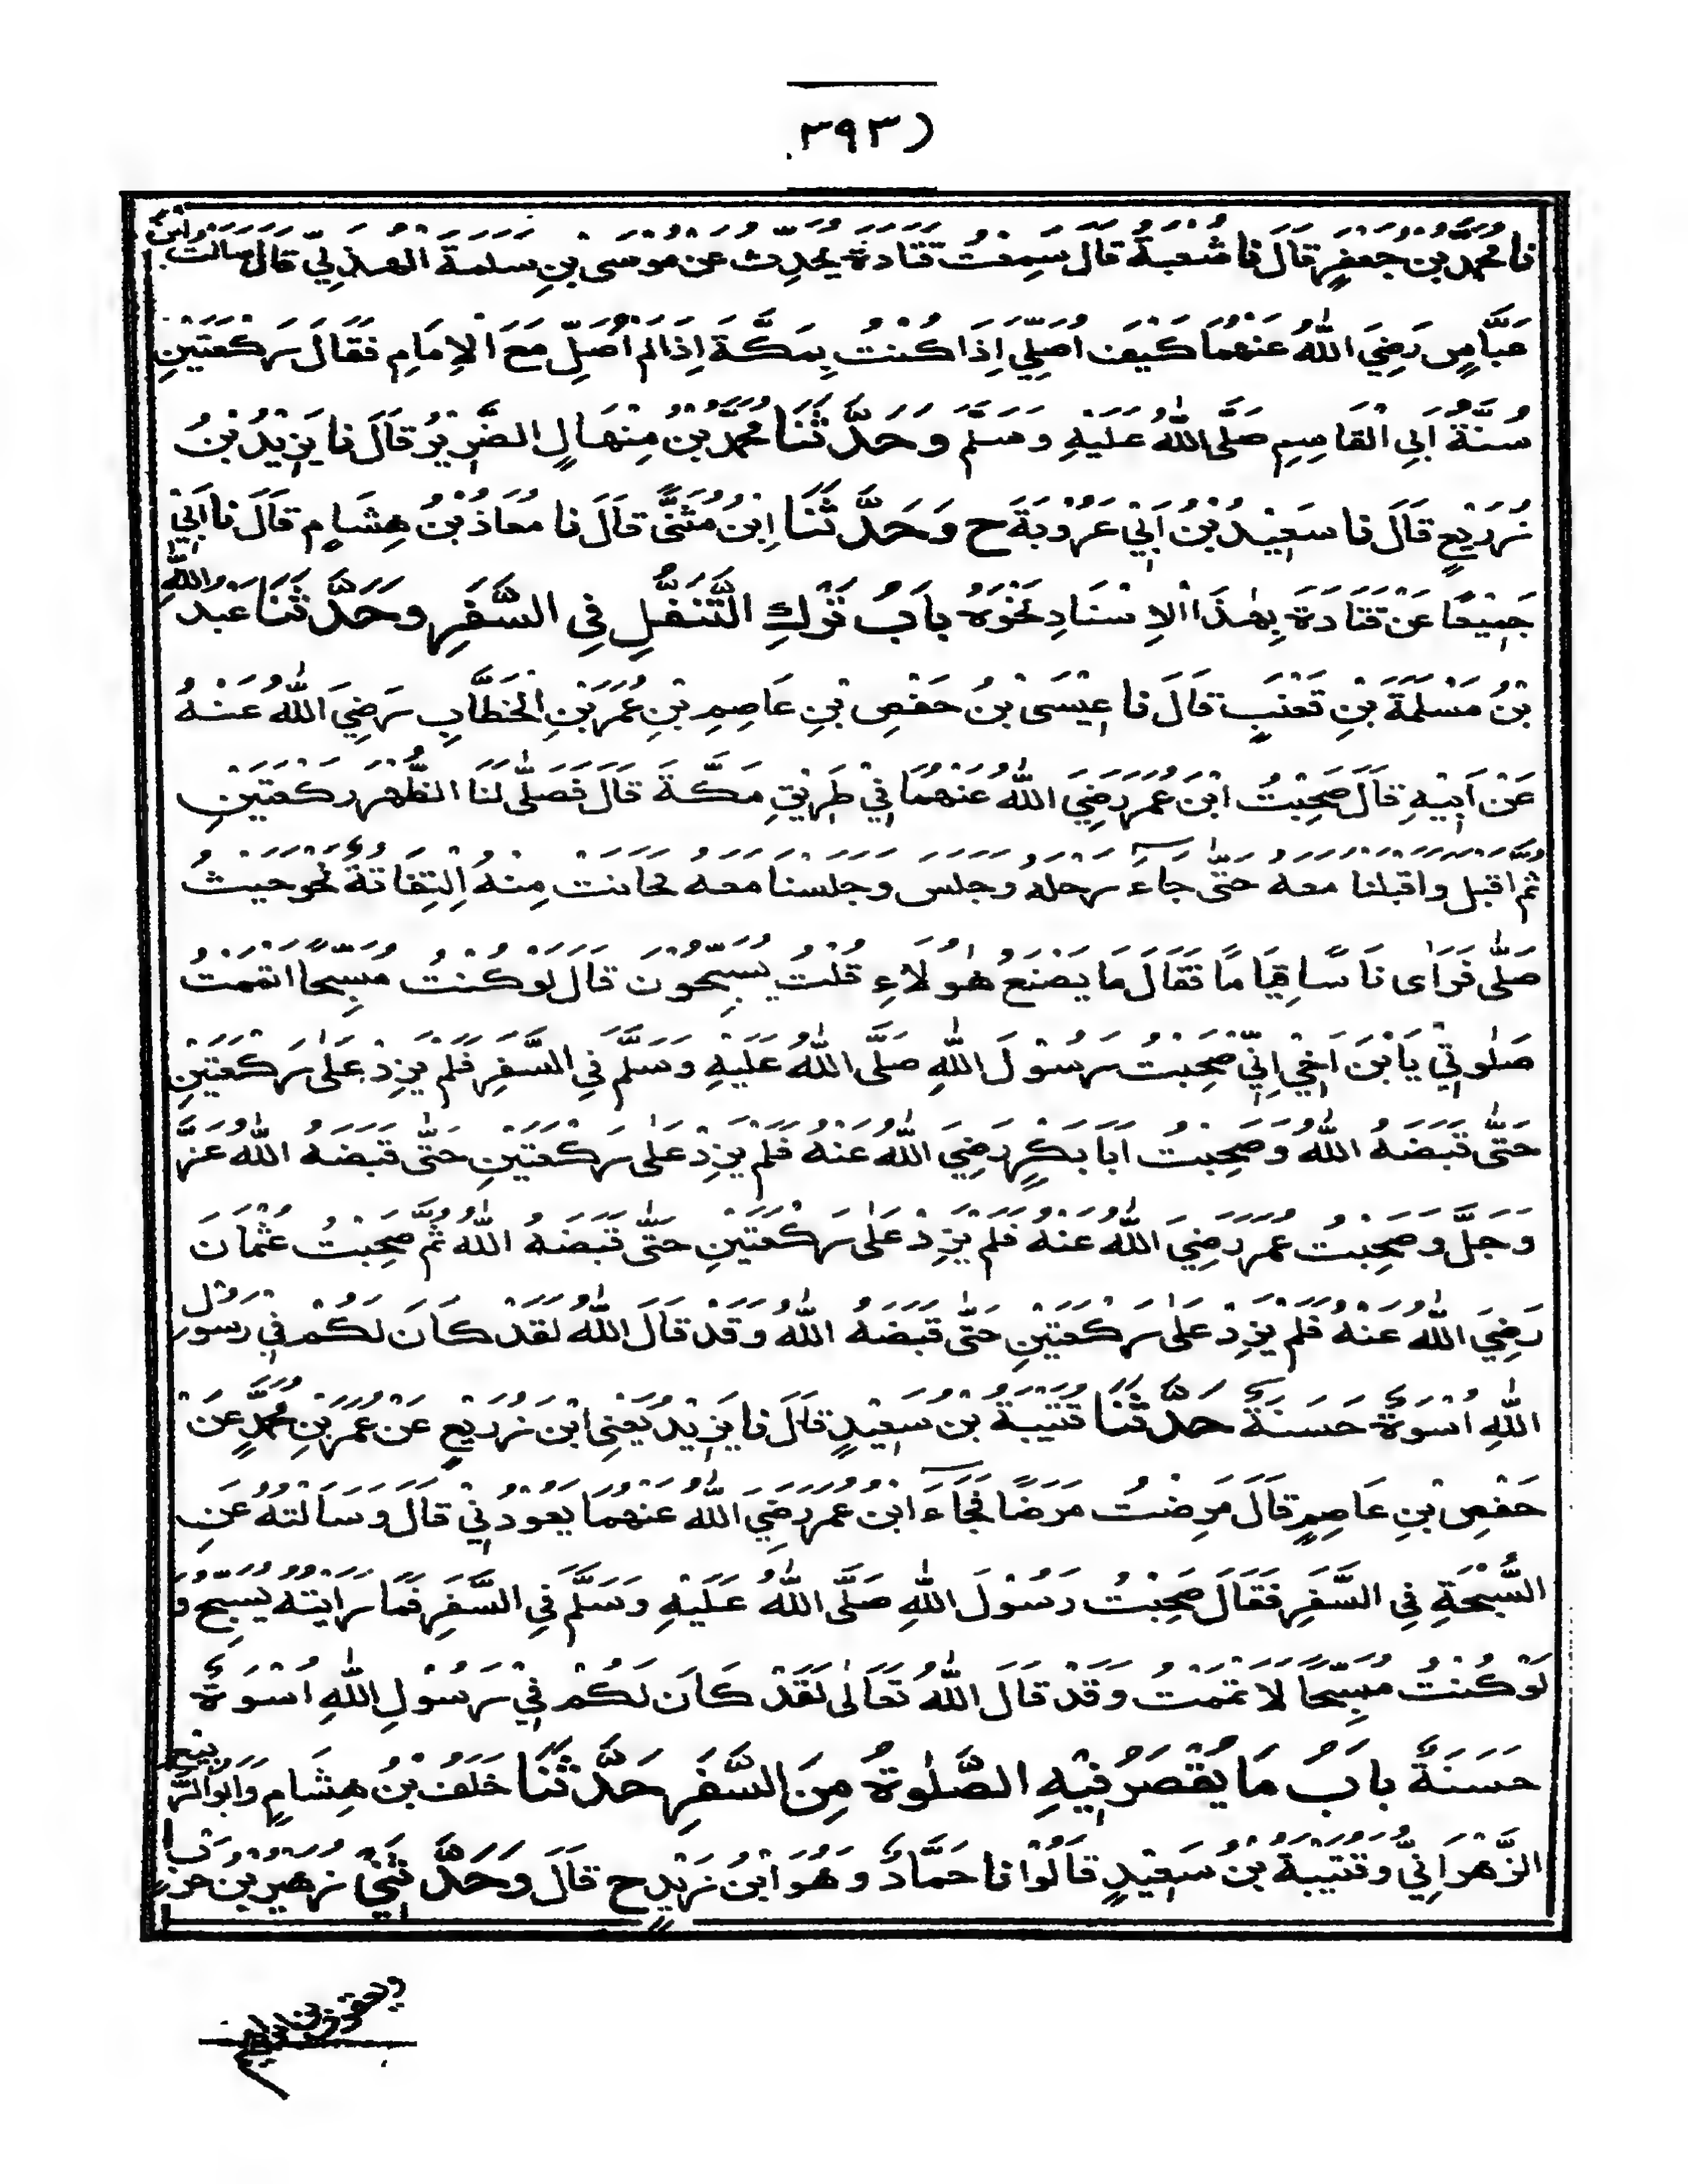 (٣٩٣
نا محمد بن جعفر قال نا شعبة قال سمعت قتادة يحدث عن موسى بن سلمة الهذلي قال سالت ابن
عباس رضي الله عنهما كيف اصلي اذا كنت بمكة اذا لم اصل مع الامام فقال ركعتين
سنة ابي القاسم صلى الله عليه وسلم وحدثنا محمد بن منهال الضرير قال نا يزيد بن
زريع قال نا سعيد بن ابي عروبة ح وحدثنا ابن مثنى قال نا معاذ بن هشام قال نا ابي
جميعا عن قتادة بهذا الاسناد نحوه باب ترك التنفل في السفر وحدثنا عبد الله
بن مسلمة بن قعنب قال نا عيسى بن حفص بن عاصم بن عمر بن الخطاب رضي الله عنه
عن ابيه قال صحبت ابن عمر رضي الله عنهما في طريق مكة قال فصلى لنا الظهر ركعتين
ثم اقبل واقبلنا معه حتى جاء رحله وجلس وجلسنا معه فحانت منه التفاتة نحو حيث
صلى فراى ناسا قياما فقال ما يصنع هؤلاء قلت يسبحون قال لو كنت مسبحا اتممت
صلوتي يا ابن اخي اني صحبت رسول الله صلى الله عليه وسلم في السفر فلم يزد على ركعتين
حتى قبضه الله وصحبت ابا بكر رضي الله عنه فلم يزد على ركعتين حتى قبضه الله عز
وجل وصحبت عمر رضي الله عنه فلم يزد على ركعتين حتى قبضه الله ثم صحبت عثمان
رضي الله عنه فلم يزد على ركعتين حتى قبضه الله وقد قال الله لقد كان لكم في رسول
الله اسوة حسنة حدثنا قتيبة بن سعيد قال نا يزيد يعني ابن زريع عن عمر بن محمد عن
حفص بن عاصم قال مرضت مرضا فجاء ابن عمر رضي الله عنهما يعودني قال وسالته عن
السبحة في السفر فقال صحبت رسول الله صلى الله عليه وسلم في السفر فما رايته يسبح و
لو كنت مسبحا لاتممت وقد قال الله تعالى لقد كان لكم في رسول الله اسوة
حسنة باب ما يقصر فيه الصلوة من السفر حدثنا خلف بن هشام وابو الربيع
الزهراني وقتيبة بن سعيد قالوا نا حماد وهو ابن زيد ح قال وحدثني زهير بن حرب
ويعقوب بن ابراهيم